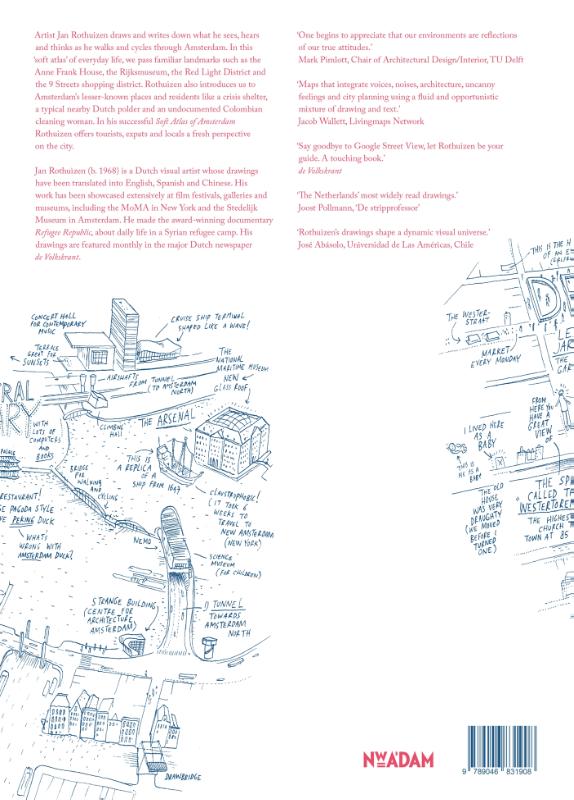 Artist Jan Rothuizen draws and writes down what he sees, hears
and thinks as he walks and cycles through Amsterdam. In this
'soft atlas' of everyday life, we pass familiar landmarks such as the
Anne Frank House, the Rijksmuseum, the Red Light District and
the 9 Streets shopping district. Rothuizen also introduces us to
Amsterdam's lesser-known places and residents like a crisis shelter,
a typical nearby Dutch polder and an undocumented Colombian
cleaning woman. In his successful Soft Atlas of Amsterdam
Rothuizen offers tourists, expats and locals a fresh perspective
on the city.
Jan Rothuizen (b. 1968) is a Dutch visual artist whose drawings
have been translated into English, Spanish and Chinese. His
work has been showcased extensively at film festivals, galleries and
museums, including the MoMA in New York and the Stedelijk
Museum in Amsterdam. He made the award-winning documentary
Refugee Republic, about daily life in a Syrian refugee camp. His
drawings are featured monthly in the major Dutch newspaper
de Volkskrant.
'One begins to appreciate that our environments are reflections
of our true attitudes.'
Mark Pimlott, Chair of Architectural Design/Interior, TU Delft
'Maps that integrate voices, noises, architecture, uncanny
feelings and city planning using a fluid and opportunistic
mixture of drawing and text.'
Jacob Wallett, Livingmaps Network
'Say goodbye to Google Street View, let Rothuizen be your
guide. A touching book.'
de Volkskrant
'The Netherlands' most widely read drawings.'
Joost Pollmann, 'De stripprofessor'
'Rothuizen's drawings shape a dynamic visual universe.'
José Abásolo, Universidad de Las Américas, Chile
CONCERT HALL
FOR CONTEMPORARY
MUSIC
CRUISE SHIP TERMINAL
SHAPED LIKE A WAVE!
TERRACE
GREAT FOR
SUNSETS
AIRSHAFTS
FROM TUNNEL
(TO AMSTERDAM
NORTH)
THE
NATIONAL
MARITIME MUSEUM
NEW
GLASS ROOF
RAL
ARY
WITH
LOTS OF
COMPUTERS
AND
BOOKS
CLIMBING
HALL
THE ARSENAL
PALACE
BRIDGE
FOR
WALKING
AND
CYCLING
THIS IS
A REPLICA
OF A
SHIP FROM 1647
CLAUSTROPHOBIC!
(IT TOOK 6
WEEKS TO
TRAVEL TO
NEW AMSTERDAM
(NEW YORK)
RESTAURANT!
PAGODA STYLE
PEKING DUCK
WHAT'S
WRONG WITH
AMSTERDAM DUCK?
NEMO
SCIENCE
MUSEUM
(FOR CHILDREN)
STRANGE BUILDING
(CENTRE FOR
ARCHITECTURE
AMSTERDAM)
IJ TUNNEL
TOWARDS
AMSTERDAM
NORTH
DRAWBRIDGE
THIS IS THE H
OF AN E
THE WESTER-
STRAAT
MARKET
EVERY MONDAY
DE
LE
JAR
THE
GAR
FROM
HERE YOU
HAVE A
GREAT
VIEW
OF
I LIVED HERE
AS A
BABY
THIS IS
ME AS A
BABY
THE OLD
HOUSE
WAS VERY
DRAUGHTY
(WE MOVED
BEFORE I
TURNED
ONE)
THE SP
CALLED T
WESTERTORE
THE HIGHES
CHURCH
TOWN AT 85
NWADAM
9 789046 831908